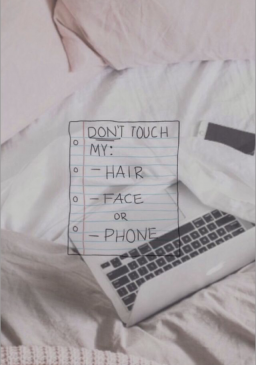 DON'T TOUCH
MY:
- HAIR
- FACE
OR
- PHONE